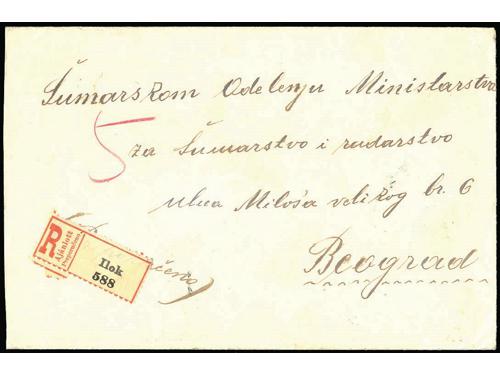 Šumarskom Odelenju Ministarstva
5
za Šumarstvo i rudarstvo
ulica Miloša velikog br. 6
R
Ajánlott
Preporučeno
Ilok
588
Beograd